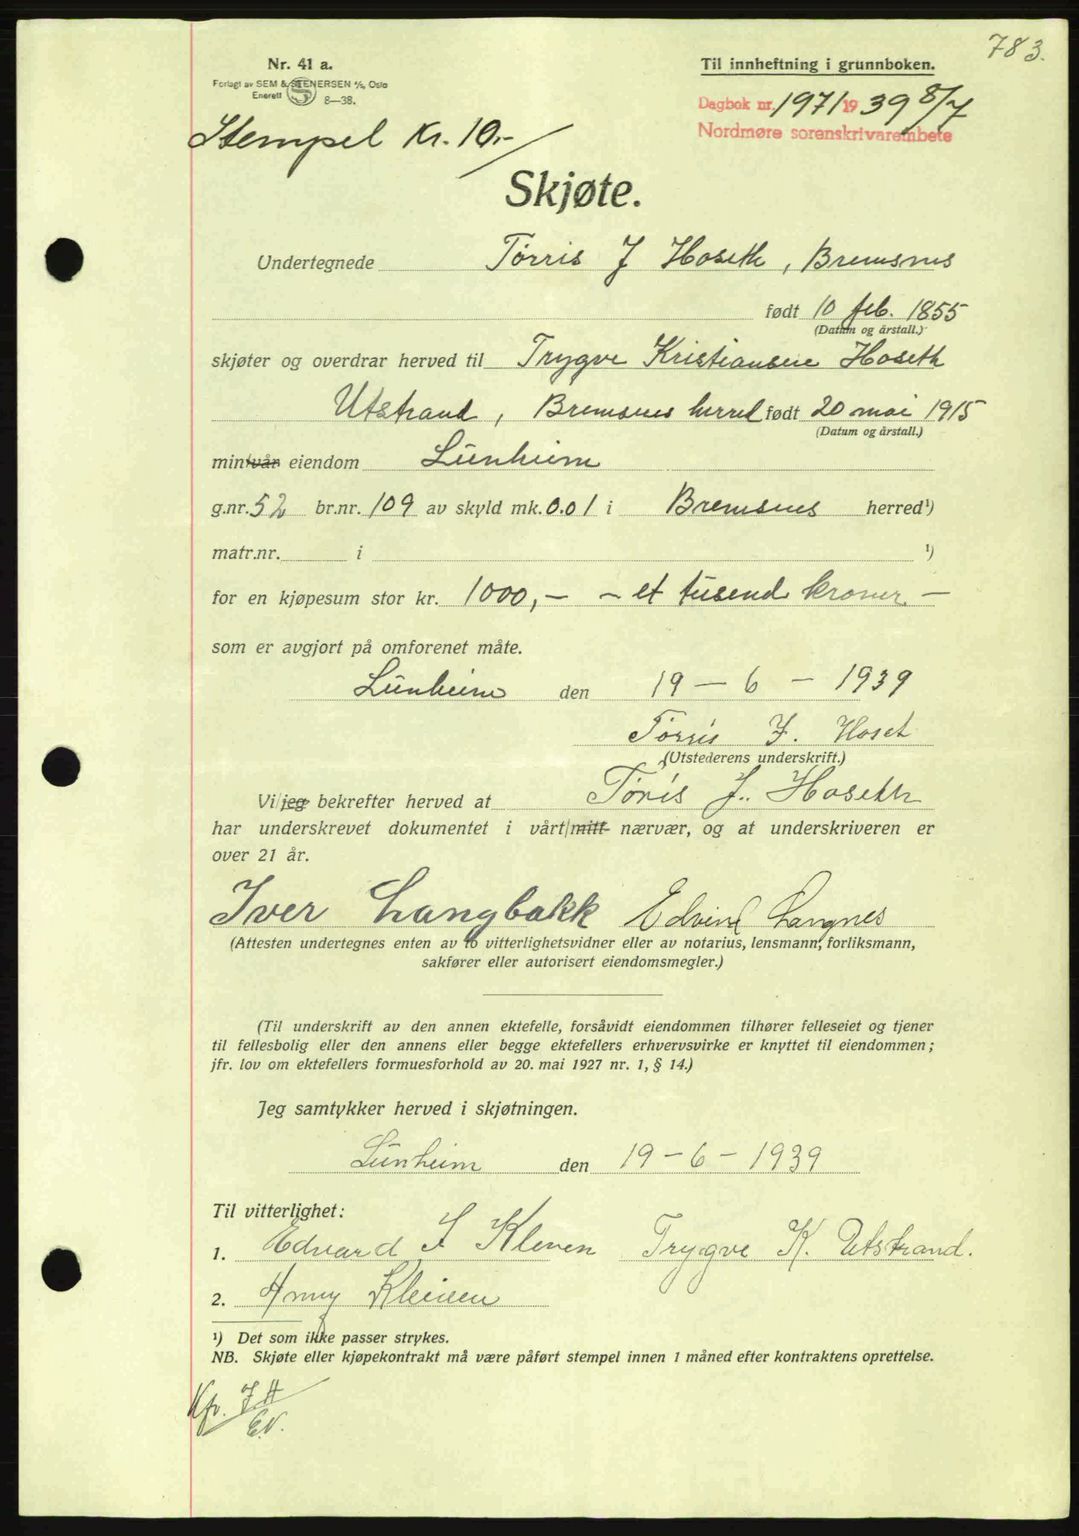 783.
Nr. 41 a.
Forlagt av SEM & STENERSEN A/S, Oslo
Enerett 8—38.
Til innheftning i grunnboken.
Dagbok nr. 1971 1939 8/7
Nordmøre sorenskrivarembete
Stempel Kr. 10.-
Skjøte.
Undertegnede Tørris J Hoseth, Bremsnes
født 10 feb. 1855
(Datum og årstall.)
skjøter og overdrar herved til Trygve Kristiansen Hoseth
Utstrand, Bremsnes herred født 20 mai 1915
(Datum og årstall.)
min/vår eiendom Lünheim
g.nr. 52 br.nr. 109 av skyld mk. 0.01 i Bremsnes herred¹)
matr.nr. i ¹)
for en kjøpesum stor kr. 1000,- - et tusend kroner. -
som er avgjort på omforenet måte.
Lünheim den 19 - 6 - 1939
Tørris J. Hoset
(Utstederens underskrift.)
Vi/jeg bekrefter herved at Tøris J. Hoseth
har underskrevet dokumentet i vårt/mitt nærvær, og at underskriveren er
over 21 år.
Iver Langbakk Edvind Langnes
(Attesten undertegnes enten av to vitterlighetsvidner eller av notarius, lensmann, forliksmann,
sakfører eller autorisert eiendomsmegler.)
(Til underskrift av den annen ektefelle, forsåvidt eiendommen tilhører felleseiet og tjener
til fellesbolig eller den annens eller begge ektefellers erhvervsvirke er knyttet til eiendommen;
jfr. lov om ektefellers formuesforhold av 20. mai 1927 nr. 1, § 14.)
Jeg samtykker herved i skjøtningen.
Lünheim den 19 - 6 - 1939
Til vitterlighet:
1. Edvard J Kleven Trygve K. Utstrand.
2. Anny Kleven
¹) Det som ikke passer strykes.
NB. Skjøte eller kjøpekontrakt må være påført stempel innen 1 måned efter kontraktens oprettelse.
Kfr. JH
E.N.